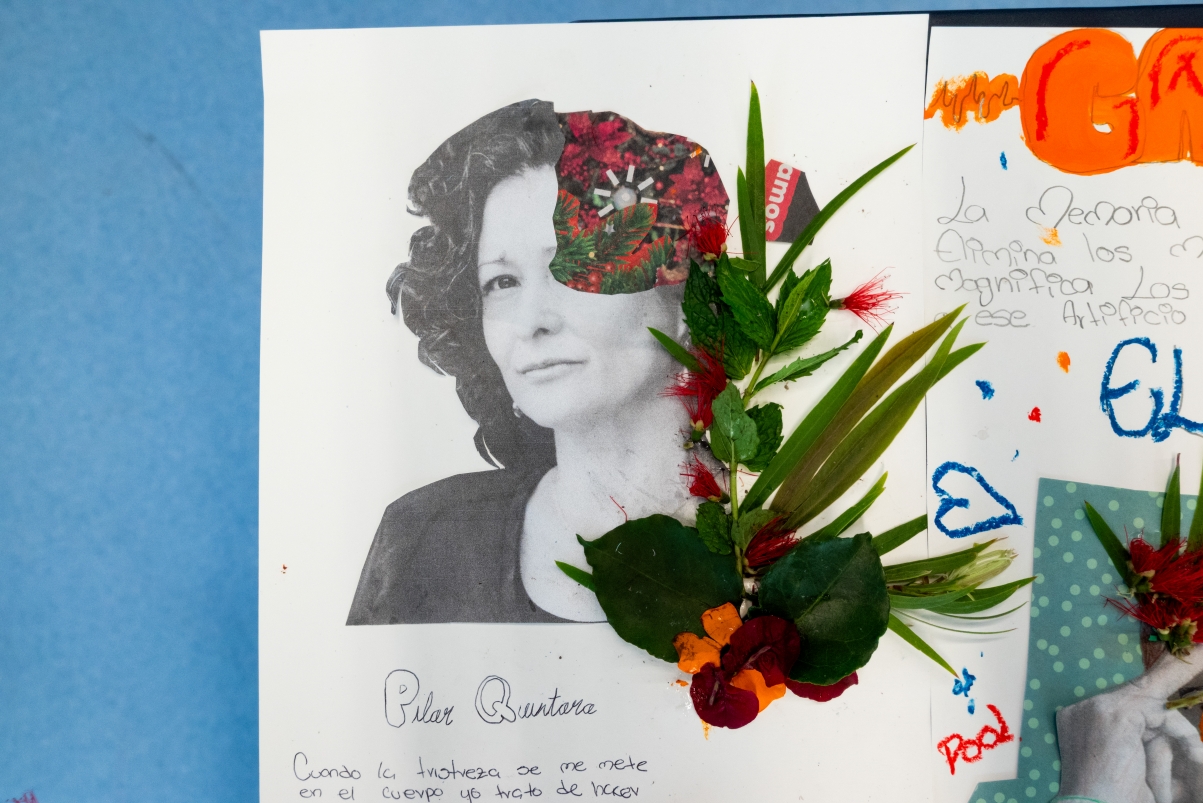 Pilar Quintana
Cuando la tristreza se me mete
en el cuerpo yo trato de hacer
amos
GA
La Memoria
Elimina los M
Magnifica Los
ese Artificio
EL
Pool